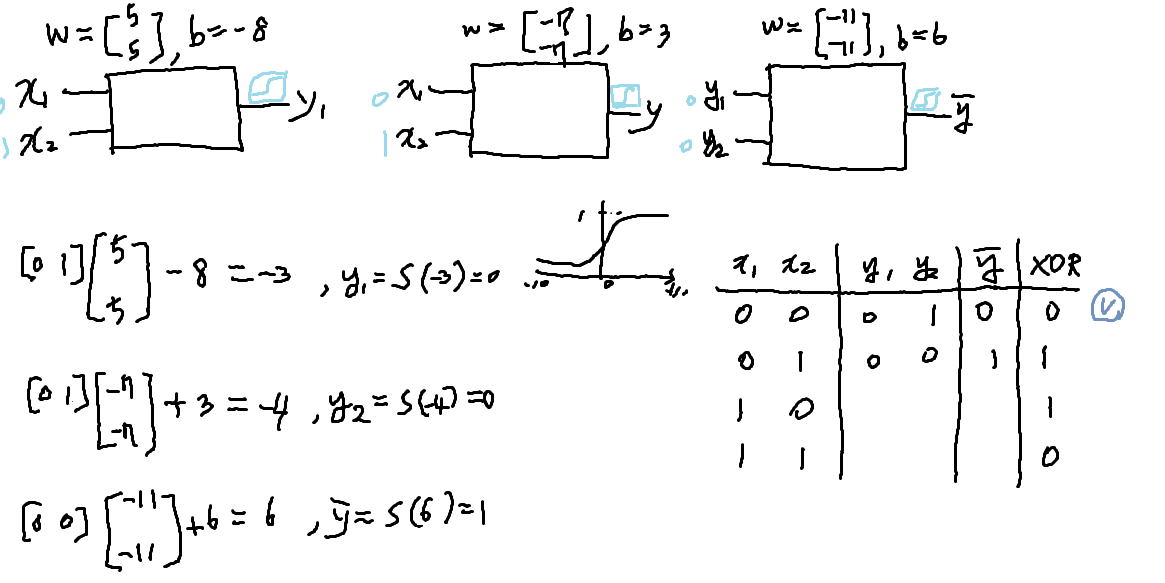 w = [5 5], b = -8
x₁
x₂
y₁
w = [-7 -7], b = 3
0 x₁
1 x₂
y
w = [-11 -11], b = 6
0 y₁
0 y₂
ȳ
[0 1] [5 5] - 8 = -3, y₁ = S(-3) = 0
[0 1] [-7 -7] + 3 = -4, y₂ = S(-4) = 0
[0 0] [-11 -11] + 6 = 6, ȳ = S(6) = 1
1
0
x₁ x₂ y₁ y₂ ȳ XOR
0 0 0 1 0 0 V
0 1 0 0 1 1
1 0 1
1 1 0